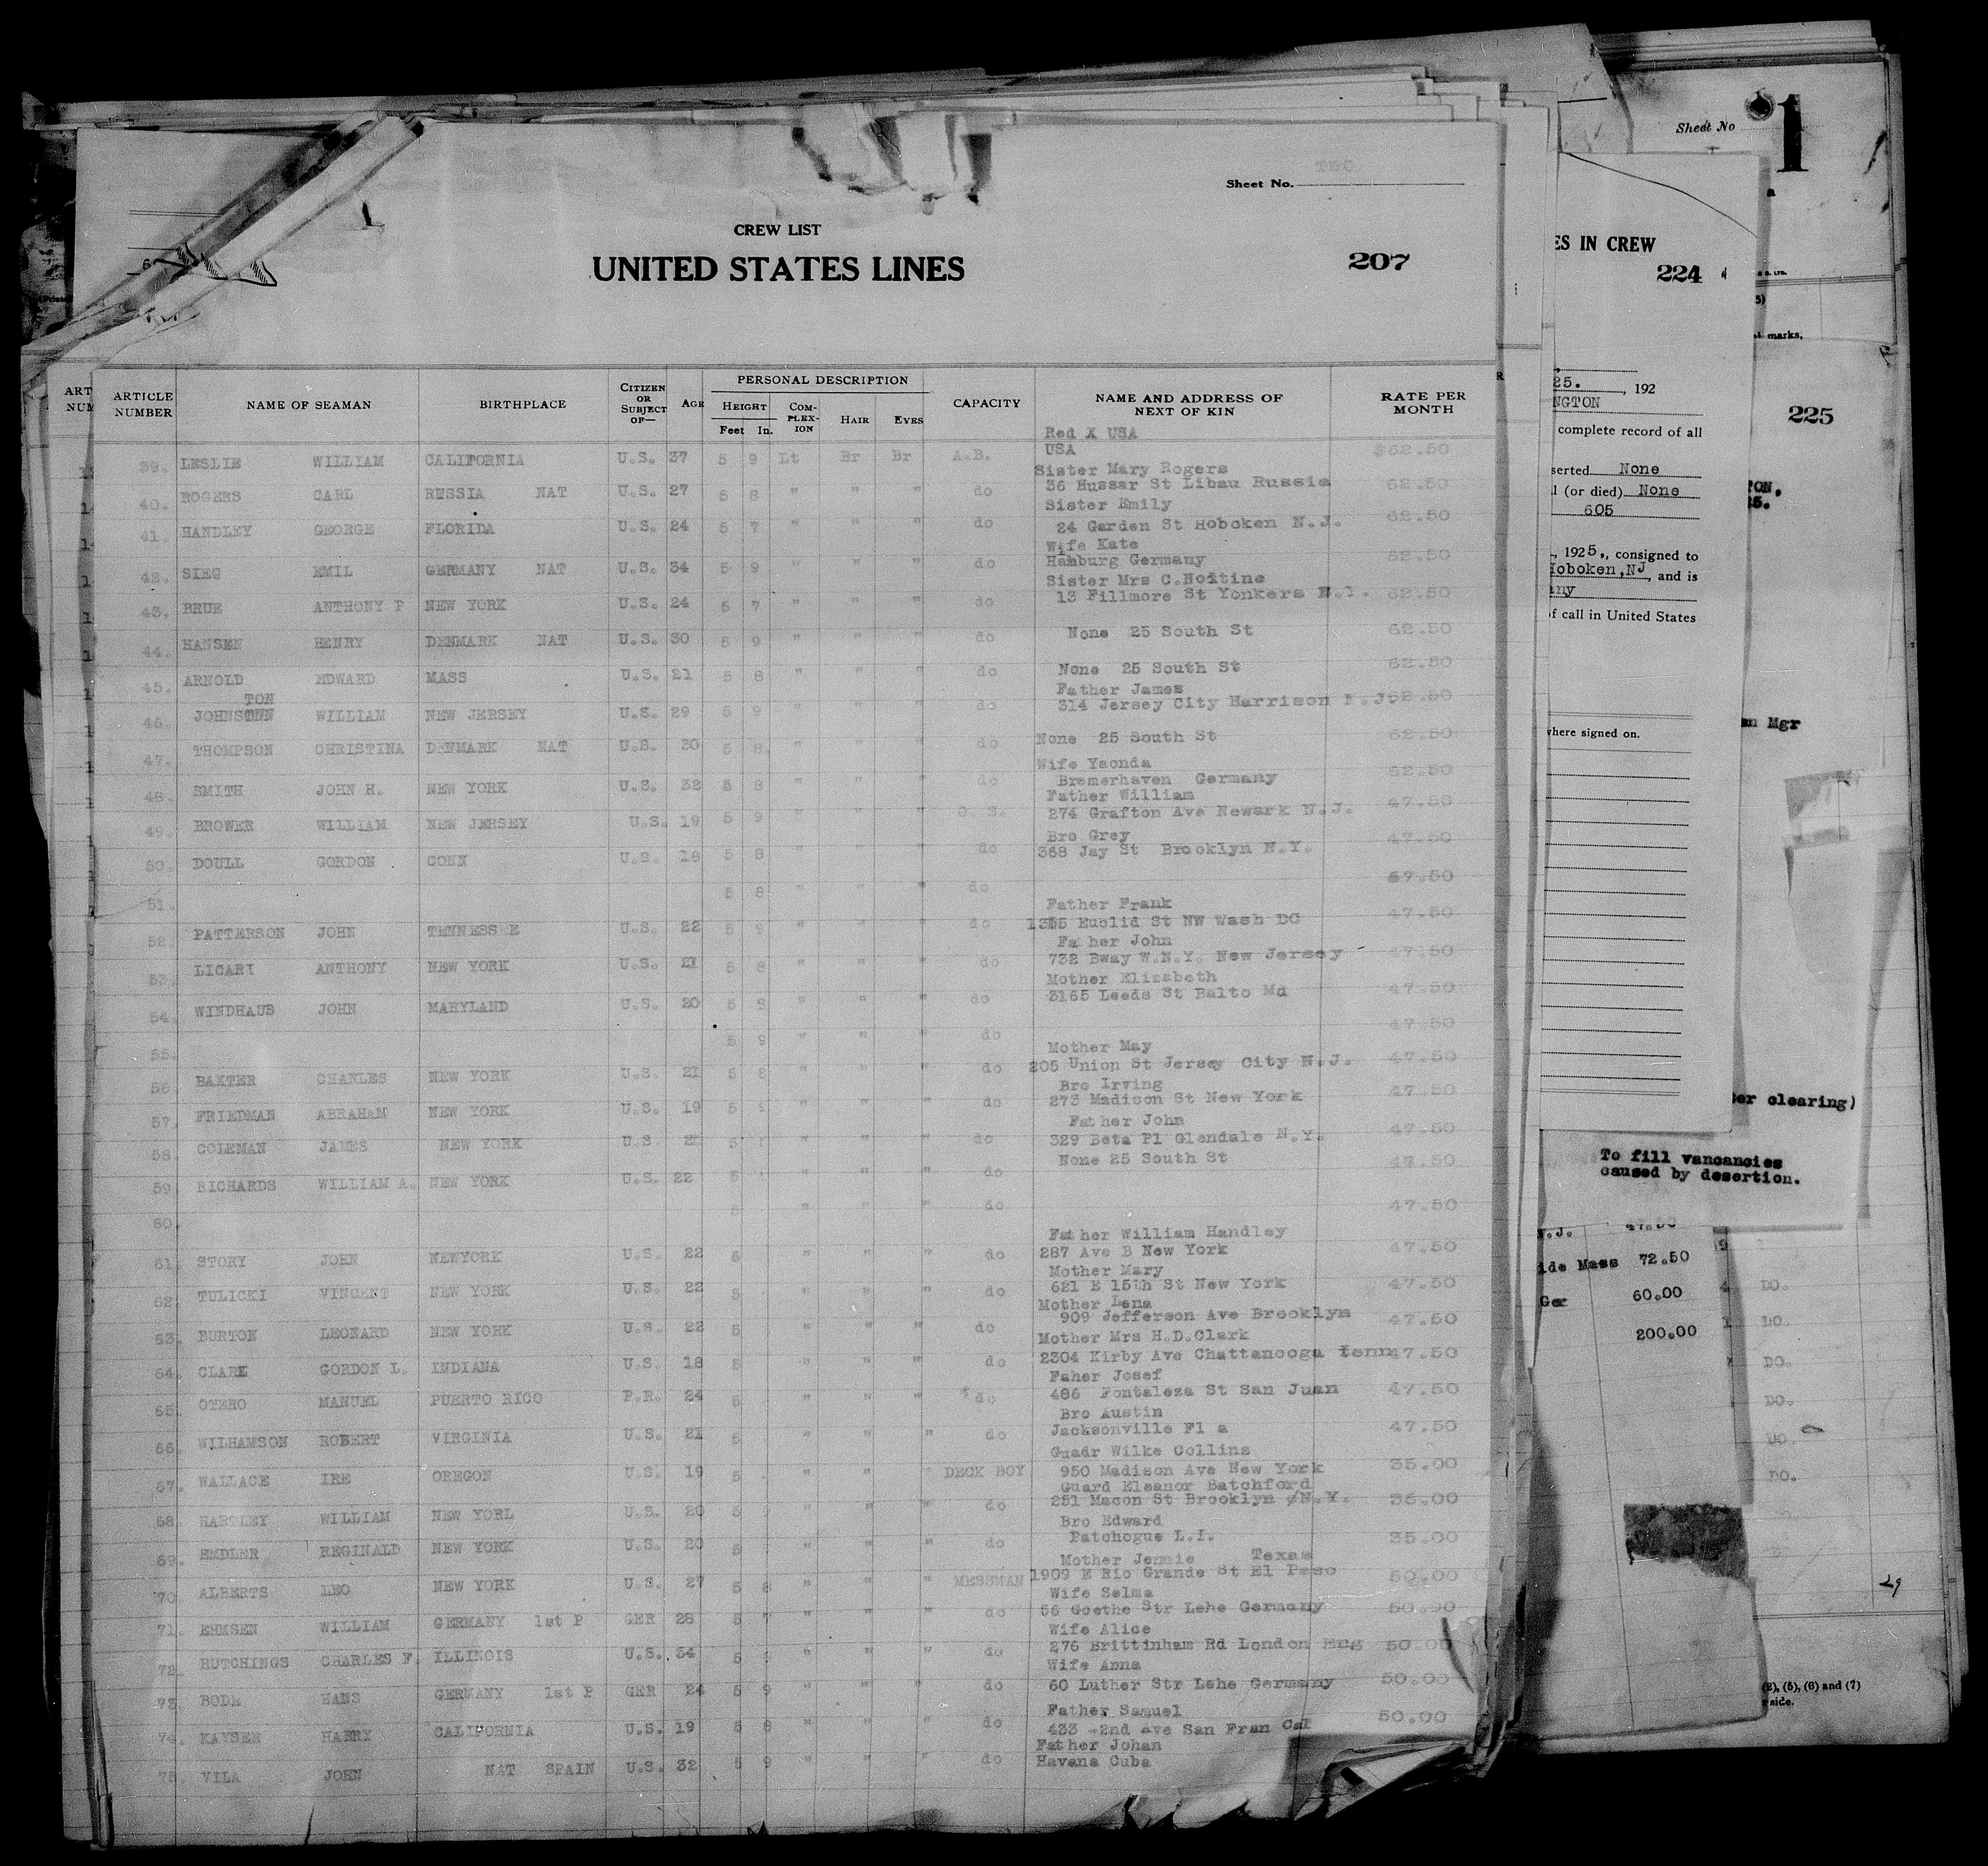 Sheet No. TEC
CREW LIST
UNITED STATES LINES
207
ARTICLE NUMBER NAME OF SEAMAN BIRTHPLACE CITIZEN OR SUBJECT OF— AGE PERSONAL DESCRIPTION HEIGHT Feet In. COM-PLEX-ION HAIR EYES CAPACITY NAME AND ADDRESS OF NEXT OF KIN RATE PER MONTH
Red X USA
39. LESLIE WILLIAM CALIFORNIA U.S. 37 5 9 Lt Br Br A.B. USA $62.50
Sister Mary Rogers
40. ROGERS CARL RUSSIA NAT U.S. 27 5 8 " " " do 36 Hussar St Libau Russia 62.50
Sister Emily
41. HANDLEY GEORGE FLORIDA U.S. 24 5 7 " " " do 24 Garden St Hoboken N.J. 62.50
Wife Kate
42. SIEG EMIL GERMANY NAT U.S. 34 5 9 " " " do Hamburg Germany 62.50
Sister Mrs C.Noitine
43. BRUE ANTHONY P NEW YORK U.S. 24 5 7 " " " do 13 Fillmore St Yonkers N.Y. 62.50
44. HANSEN HENRY DENMARK NAT U.S. 30 5 9 " " " do None 25 South St 62.50
45. ARNOLD EDWARD MASS U.S. 21 5 8 " " " do None 25 South St 62.50
TON Father James
46. JOHNSTON WILLIAM NEW JERSEY U.S. 29 5 9 " " " do 314 Jersey City Harrison N.J. 62.50
47. THOMPSON CHRISTINA DENMARK NAT U.S. 30 5 8 " " " do None 25 South St 62.50
Wife Yaonda
48. SMITH JOHN H. NEW YORK U.S. 32 5 8 " " " do Bremerhaven Germany 62.50
Father William
49. BROWER WILLIAM NEW JERSEY U.S. 19 5 9 " " " O.S. 274 Grafton Ave Newark N.J. 47.50
Bro Grey
50. DOULL GORDON CONN U.S. 18 5 8 " " " do 368 Jay St Brooklyn N.Y. 47.50
51. 5 8 " " " do 57.50
Father Frank
52. PATTERSON JOHN TENNESSEE U.S. 22 5 9 " " " do 1355 Euclid St NW Wash DC 47.50
Father John
53. LICARI ANTHONY NEW YORK U.S. 21 5 8 " " " do 732 Bway W.N.Y. New Jersey 47.50
Mother Elizabeth
54. WINDHAUS JOHN MARYLAND U.S. 20 5 9 " " " do 3165 Leeds St Balto Md 47.50
55. 5 9 " " " do 47.50
Mother May
56. BAXTER CHARLES NEW YORK U.S. 21 5 8 " " " do 205 Union St Jersey City N.J. 47.50
Bro Irving
57. FRIEDMAN ABRAHAM NEW YORK U.S. 19 5 " " " do 273 Madison St New York 47.50
Father John
58. COLEMAN JAMES NEW YORK U.S. 5 " " " do 329 Beta Pl Glendale N.Y. 47.50
59. RICHARDS WILLIAM A. NEW YORK U.S. 22 5 " " " do None 25 South St 47.50
60. 5 " " " do 47.50
Father William Handley
61. STORY JOHN NEWYORK U.S. 22 5 " " " do 287 Ave B New York 47.50
Mother Mary
62. TULICKI VINCENT NEW YORK U.S. 22 5 " " " do 621 E 15th St New York 47.50
Mother Lena
63. BURTON LEONARD NEW YORK U.S. 22 5 " " " do 909 Jefferson Ave Brooklyn 47.50
Mother Mrs H.D.Clark
64. CLARK GORDON L. INDIANA U.S. 18 5 " " " do 2304 Kirby Ave Chattanooga tenn 47.50
Faher Josef
65. OTERO MANUEL PUERTO RICO P.R. 24 5 " " " do 486 Fontaleza St San Juan 47.50
Bro Austin
66. WILHAMSON ROBERT VIRGINIA U.S. 21 5 " " " do Jacksonville Fl a 47.50
Guadr Wilke Collins
67. WALLACE IRE OREGON U.S. 19 5 " " " DECK BOY 950 Madison Ave New York 35.00
Guard Eleanor Batchford
68. HARTLEY WILLIAM NEW YORL U.S. 20 5 " " " do 251 Macon St Brooklyn N.Y. 35.00
Bro Edward
69. EMDLER REGINALD NEW YORK U.S. 20 5 " " " do Patchogue L.I. 35.00
Mother Jennie Texas
70. ALBERTS LEO NEW YORK U.S. 27 5 8 " " " MESSMAN 1909 E Rio Grande St El Paso 50.00
Wife Selma
71. EHMSEN WILLIAM GERMANY 1st P GER 28 5 7 " " " do 56 Goethe Str Lehe Germany 50.00
Wife Alice
72. HUTCHINGS CHARLES F. ILLINOIS U.S. 34 5 " " " do 276 Brittinham Rd London Eng 50.00
Wife Anna
73. BODE HANS GERMANY 1st P GER 24 5 9 " " " do 60 Luther Str Lehe Germany 50.00
Father Samuel
74. KAYSEN HARRY CALIFORNIA U.S. 19 5 8 " " " do 433 2nd Ave San Fran Cal 50.00
Father Johan
75. VILA JOHN NAT SPAIN U.S. 32 5 9 " " " do Havana Cuba
Sheet No 1
ES IN CREW
224
25. , 192
NGTON
complete record of all
serted None
l (or died) None
605
, 1925., consigned to
Hoboken,NJ, and is
any
of call in United States
where signed on.
marks,
225
TON,
25.
an Mgr
ter clearing)
To fill vancancies
caused by desertion.
N.J. 47.50
ide Mass 72.50
Ger 60.00
200.00
DO.
DO.
DO.
DO.
DO.
DO.
29
(2), (5), (6) and (7)
side.